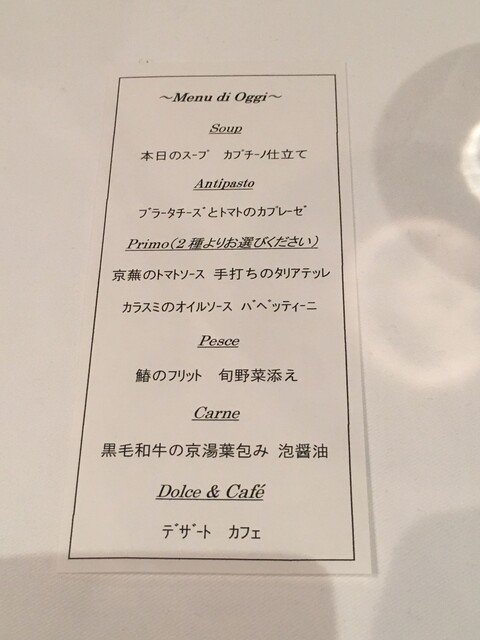 ～Menu di Oggi～
Soup
本日のスープ　カプチーノ仕立て
Antipasto
ブラータチーズとトマトのカプレーゼ
Primo（2種よりお選びください）
京蕪のトマトソース　手打ちのタリアテッレ
カラスミのオイルソース　バベッティーニ
Pesce
鰆のフリット　旬野菜添え
Carne
黒毛和牛の京湯葉包み　泡醤油
Dolce & Café
デザート　カフェ